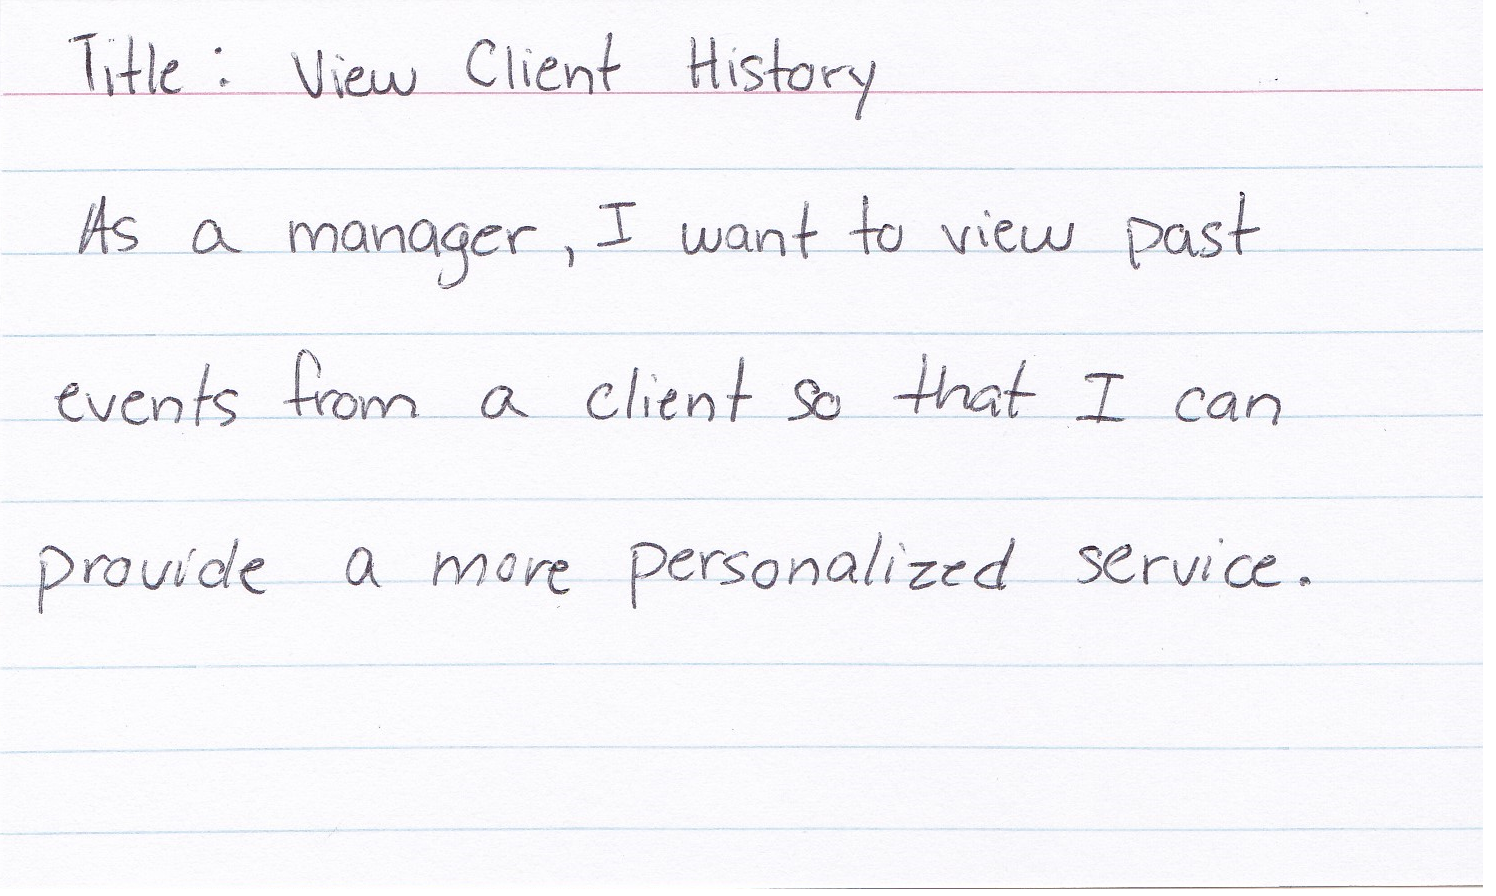 Title: View Client History
As a manager, I want to view past
events from a client so that I can
provide a more personalized service.